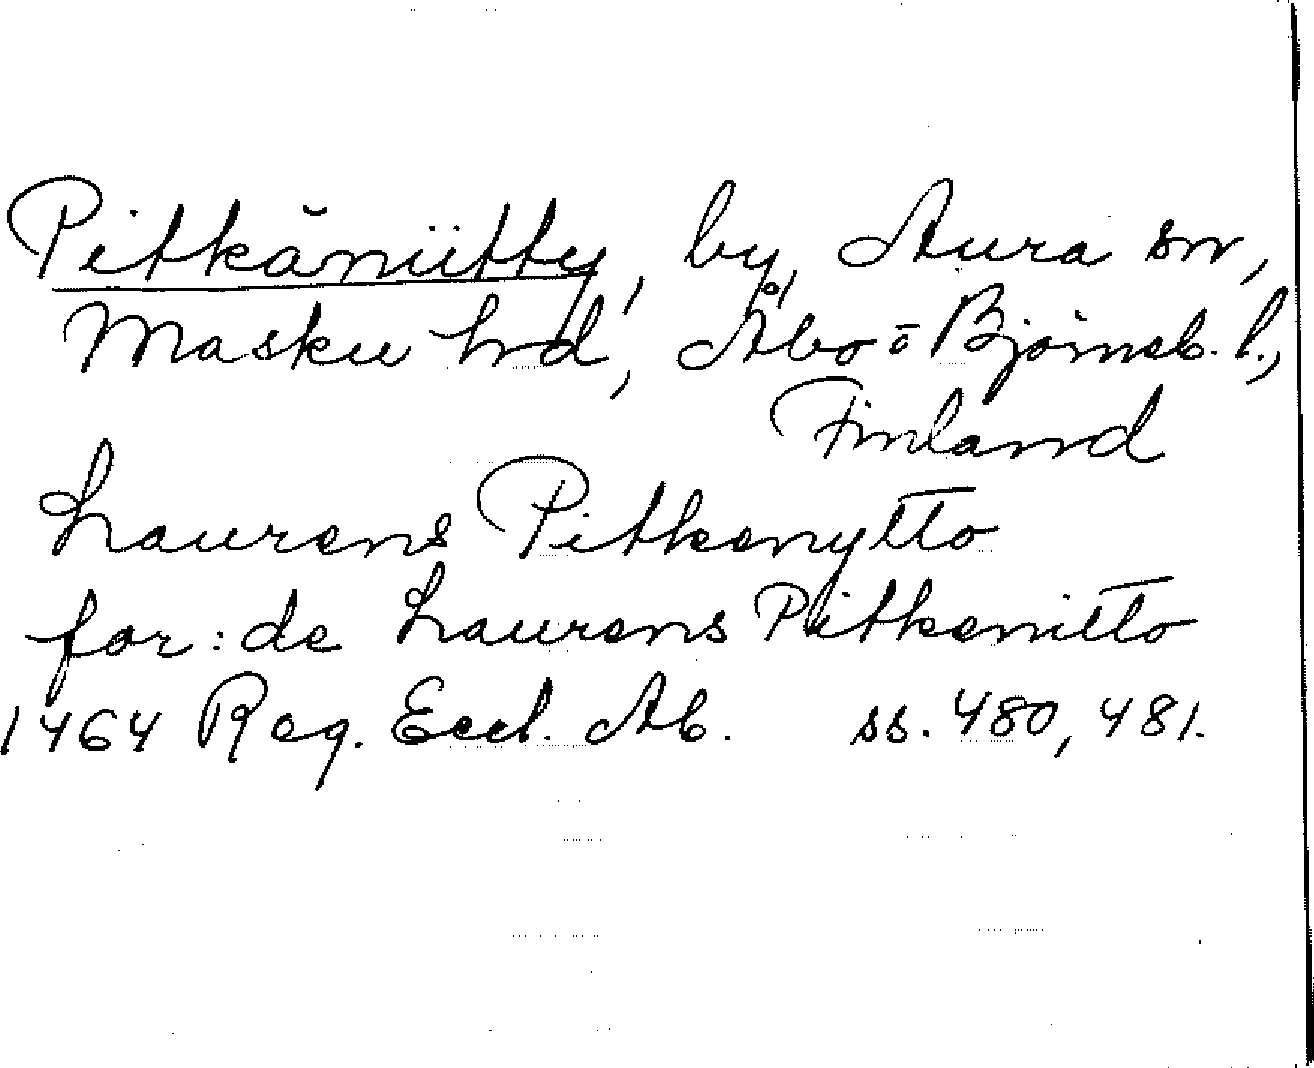 Pitkäniitty, by, Aura sn,
Masku hrd, Åbo o Björneb. l.,
Finland
Laurens Pitkenytto
for: de Laurens Pitkenitto
1464 Reg. Eccl. Ab. ss. 480, 481.